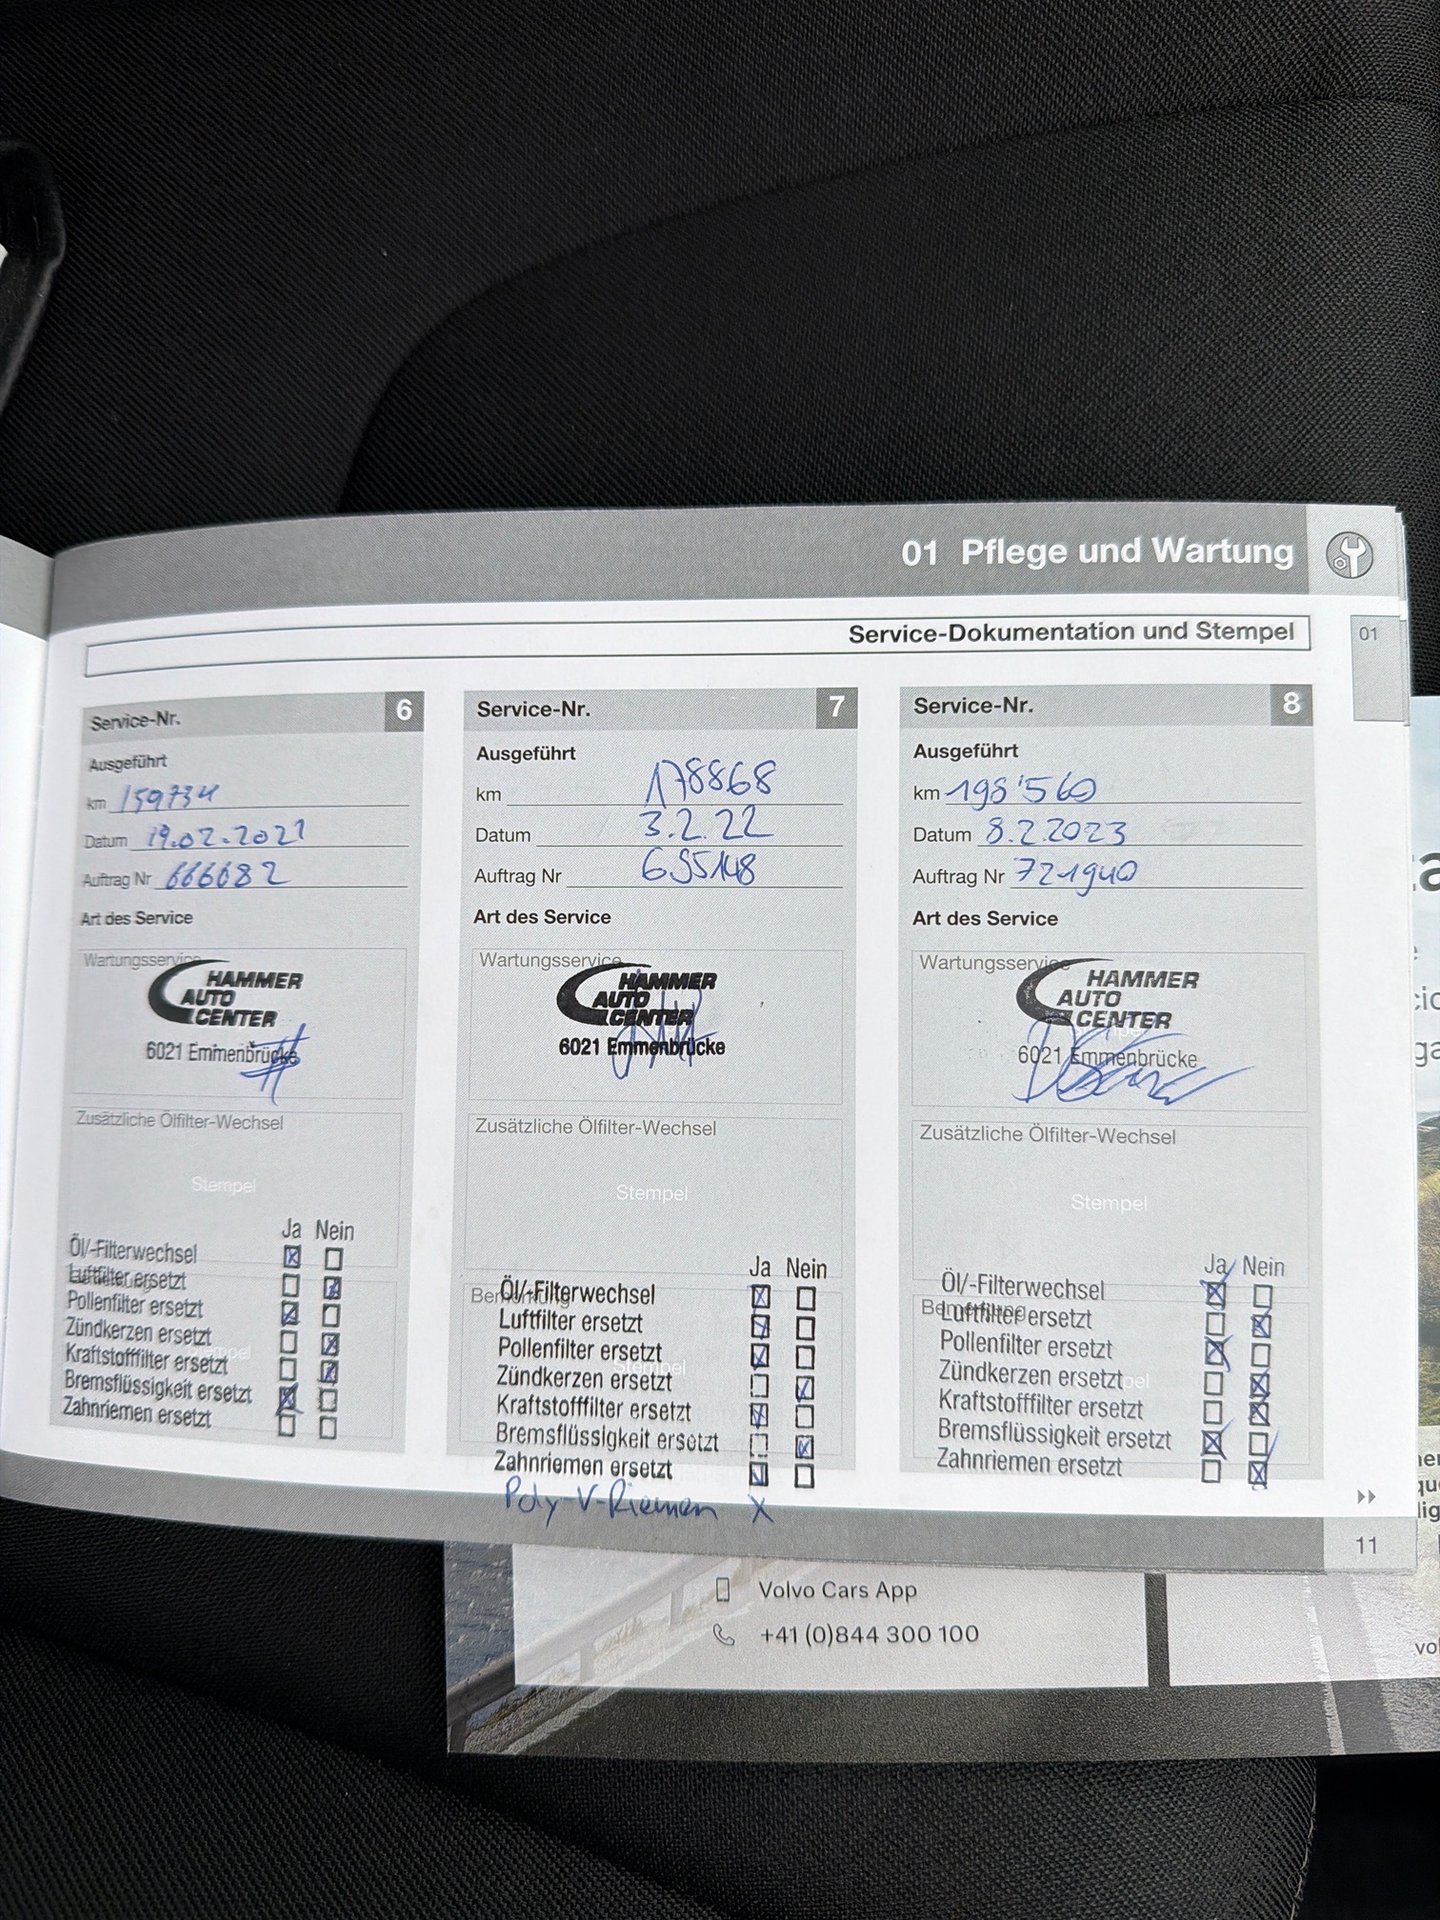 01 Pflege und Wartung
Service-Dokumentation und Stempel
01
Service-Nr. 6
Ausgeführt
km 159734
Datum 19.02.2021
Auftrag Nr 666682
Art des Service
Wartungsservice
HAMMER
AUTO
CENTER
6021 Emmenbrücke
Zusätzliche Ölfilter-Wechsel
Stempel
Ja Nein
Öl/-Filterwechsel
Luftfilter ersetzt
Pollenfilter ersetzt
Zündkerzen ersetzt
Kraftstofffilter ersetzt
Bremsflüssigkeit ersetzt
Zahnriemen ersetzt
Service-Nr. 7
Ausgeführt
km 178868
Datum 3.2.22
Auftrag Nr 695148
Art des Service
Wartungsservice
HAMMER
AUTO
CENTER
6021 Emmenbrücke
Zusätzliche Ölfilter-Wechsel
Stempel
Ja Nein
Bemerkung
Öl/-Filterwechsel
Luftfilter ersetzt
Pollenfilter ersetzt
Stempel
Zündkerzen ersetzt
Kraftstofffilter ersetzt
Bremsflüssigkeit ersetzt
Zahnriemen ersetzt
Poly-V-Riemen X
Service-Nr. 8
Ausgeführt
km 198'560
Datum 8.2.2023
Auftrag Nr 721940
Art des Service
Wartungsservice
HAMMER
AUTO
CENTER
6021 Emmenbrücke
Zusätzliche Ölfilter-Wechsel
Stempel
Ja Nein
Öl/-Filterwechsel
Bemerkung
Luftfilter ersetzt
Pollenfilter ersetzt
Zündkerzen ersetzt
Kraftstofffilter ersetzt
Bremsflüssigkeit ersetzt
Zahnriemen ersetzt
11
Volvo Cars App
+41 (0)844 300 100